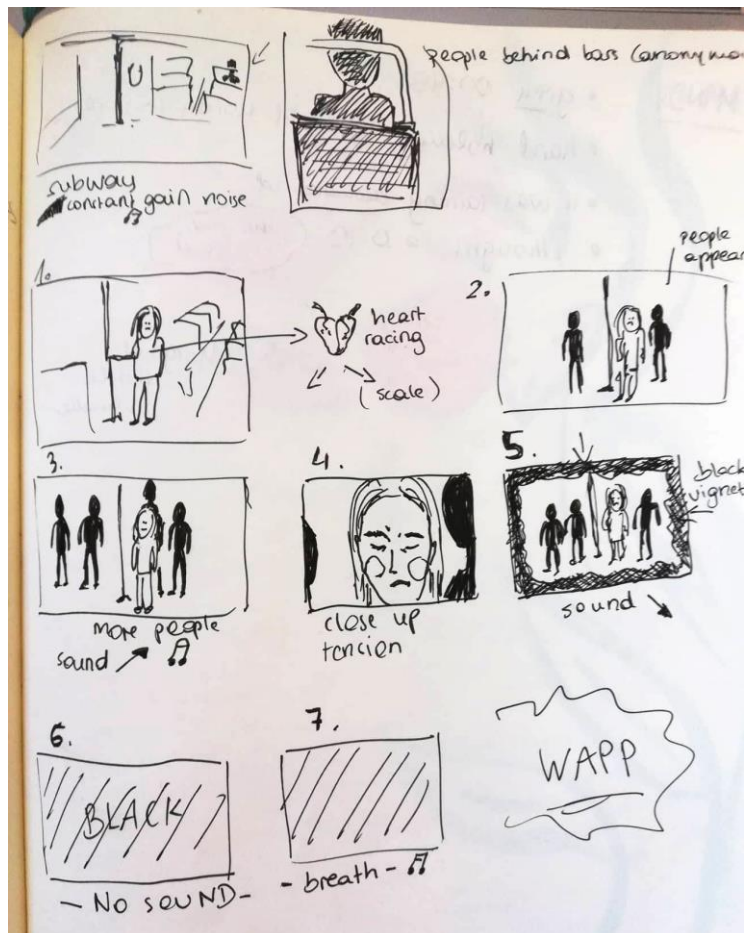 people behind bars (anonymo
subway
constant gain noise
1.
heart
racing
(scale)
2.
people
appear
3.
more people
sound
4.
close up
tencien
5.
black
vignet
sound
6.
BLACK
- NO SOUND -
7.
- breath -
WAPP